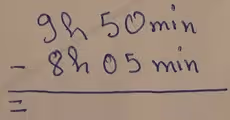 9h 50min
- 8h 05 min
=